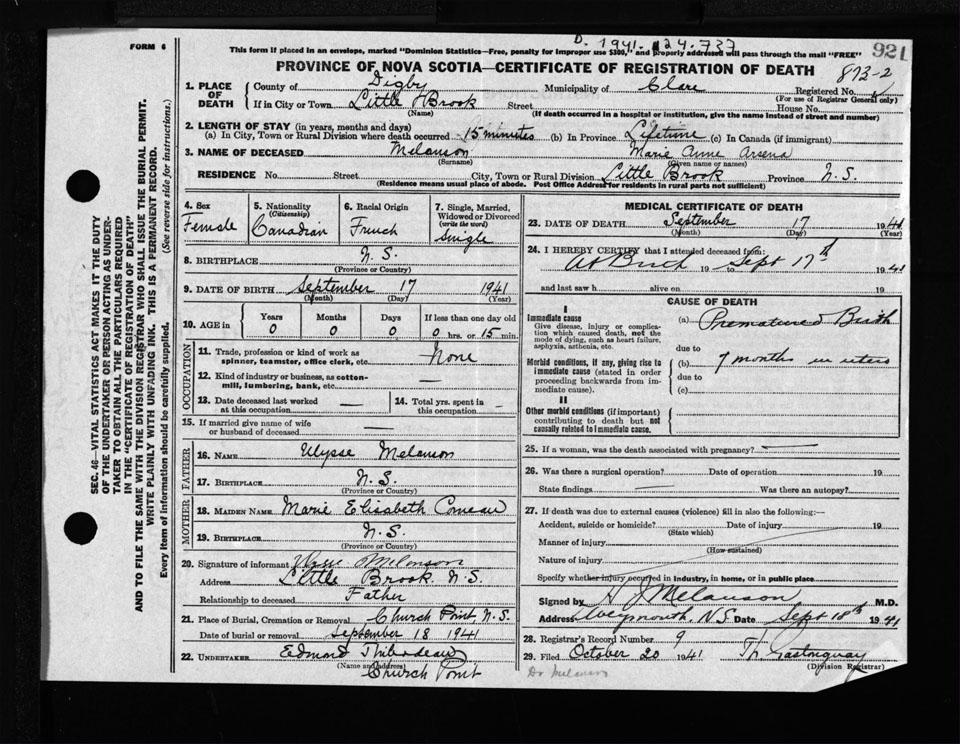 D. 1941. 124.737
FORM 6
This form if placed in an envelope, marked "Dominion Statistics—Free, penalty for improper use $300," and properly addressed will pass through the mail "FREE"
921
PROVINCE OF NOVA SCOTIA—CERTIFICATE OF REGISTRATION OF DEATH
873-2
1. PLACE OF DEATH
County of Digby Municipality of Clare Registered No.
(For use of Registrar General only)
If in City or Town Little Brook Street House No.
(Name) (If death occurred in a hospital or institution, give the name instead of street and number)
2. LENGTH OF STAY (in years, months and days)
(a) In City, Town or Rural Division where death occurred 15 minutes (b) In Province Lifetime (c) In Canada (if immigrant)
3. NAME OF DECEASED Melanson Marie Anne
(Surname) (Given name or names)
RESIDENCE No. Street City, Town or Rural Division Little Brook Province N.S.
(Residence means usual place of abode. Post Office Address for residents in rural parts not sufficient)
4. Sex Female
5. Nationality (Citizenship) Canadian
6. Racial Origin French
7. Single, Married, Widowed or Divorced (write the word) Single
8. BIRTHPLACE N.S.
(Province or Country)
9. DATE OF BIRTH September 17 1941
(Month) (Day) (Year)
10. AGE in Years Months Days If less than one day old
0 0 0 0 hrs. or 15 min.
OCCUPATION
11. Trade, profession or kind of work as spinner, teamster, office clerk, etc. None
12. Kind of industry or business, as cotton-mill, lumbering, bank, etc. —
13. Date deceased last worked at this occupation —
14. Total yrs. spent in this occupation —
15. If married give name of wife or husband of deceased —
FATHER
16. NAME Ulysse Melanson
17. BIRTHPLACE N.S.
(Province or Country)
MOTHER
18. MAIDEN NAME Marie Elisabeth Comeau
19. BIRTHPLACE N.S.
(Province or Country)
20. Signature of informant Melanson
Address Little Brook N.S.
Relationship to deceased Father
21. Place of Burial, Cremation or Removal Church Point N.S.
Date of burial or removal September 18 1941
22. UNDERTAKER Edmond Thibodeau
(Name and address)
Church Point
MEDICAL CERTIFICATE OF DEATH
23. DATE OF DEATH September 17 1941
(Month) (Day) (Year)
24. I HEREBY CERTIFY that I attended deceased from:
At 19 to Sept 17th 1941
and last saw h alive on 19
CAUSE OF DEATH
I
Immediate cause
Give disease, injury or complication which caused death, not the mode of dying, such as heart failure, asphyxia, asthenia, etc.
(a) Prematured Birth
due to
Morbid conditions, if any, giving rise to immediate cause (stated in order proceeding backwards from immediate cause).
(b) 7 months in utero
due to
(c)
II
Other morbid conditions (if important) contributing to death but not causally related to immediate cause.
25. If a woman, was the death associated with pregnancy? —
26. Was there a surgical operation? Date of operation 19
State findings — Was there an autopsy?
27. If death was due to external causes (violence) fill in also the following:—
Accident, suicide or homicide? Date of injury 19
(State which)
Manner of injury
(How sustained)
Nature of injury
Specify whether injury occurred in industry, in home, or in public place
Signed by Melanson M.D.
Address Weymouth, N.S. Date Sept 18th 1941
28. Registrar's Record Number 9
29. Filed October 20 1941
(Division Registrar)
Dr Melanson
SEC. 46—VITAL STATISTICS ACT MAKES IT THE DUTY
OF THE UNDERTAKER OR PERSON ACTING AS UNDER-
TAKER TO OBTAIN ALL THE PARTICULARS REQUIRED
IN THE "CERTIFICATE OF REGISTRATION OF DEATH"
AND TO FILE THE SAME WITH THE DIVISION REGISTRAR WHO SHALL ISSUE THE BURIAL PERMIT.
WRITE PLAINLY WITH UNFADING INK. THIS IS A PERMANENT RECORD.
Every item of information should be carefully supplied. (See reverse side for instructions.)